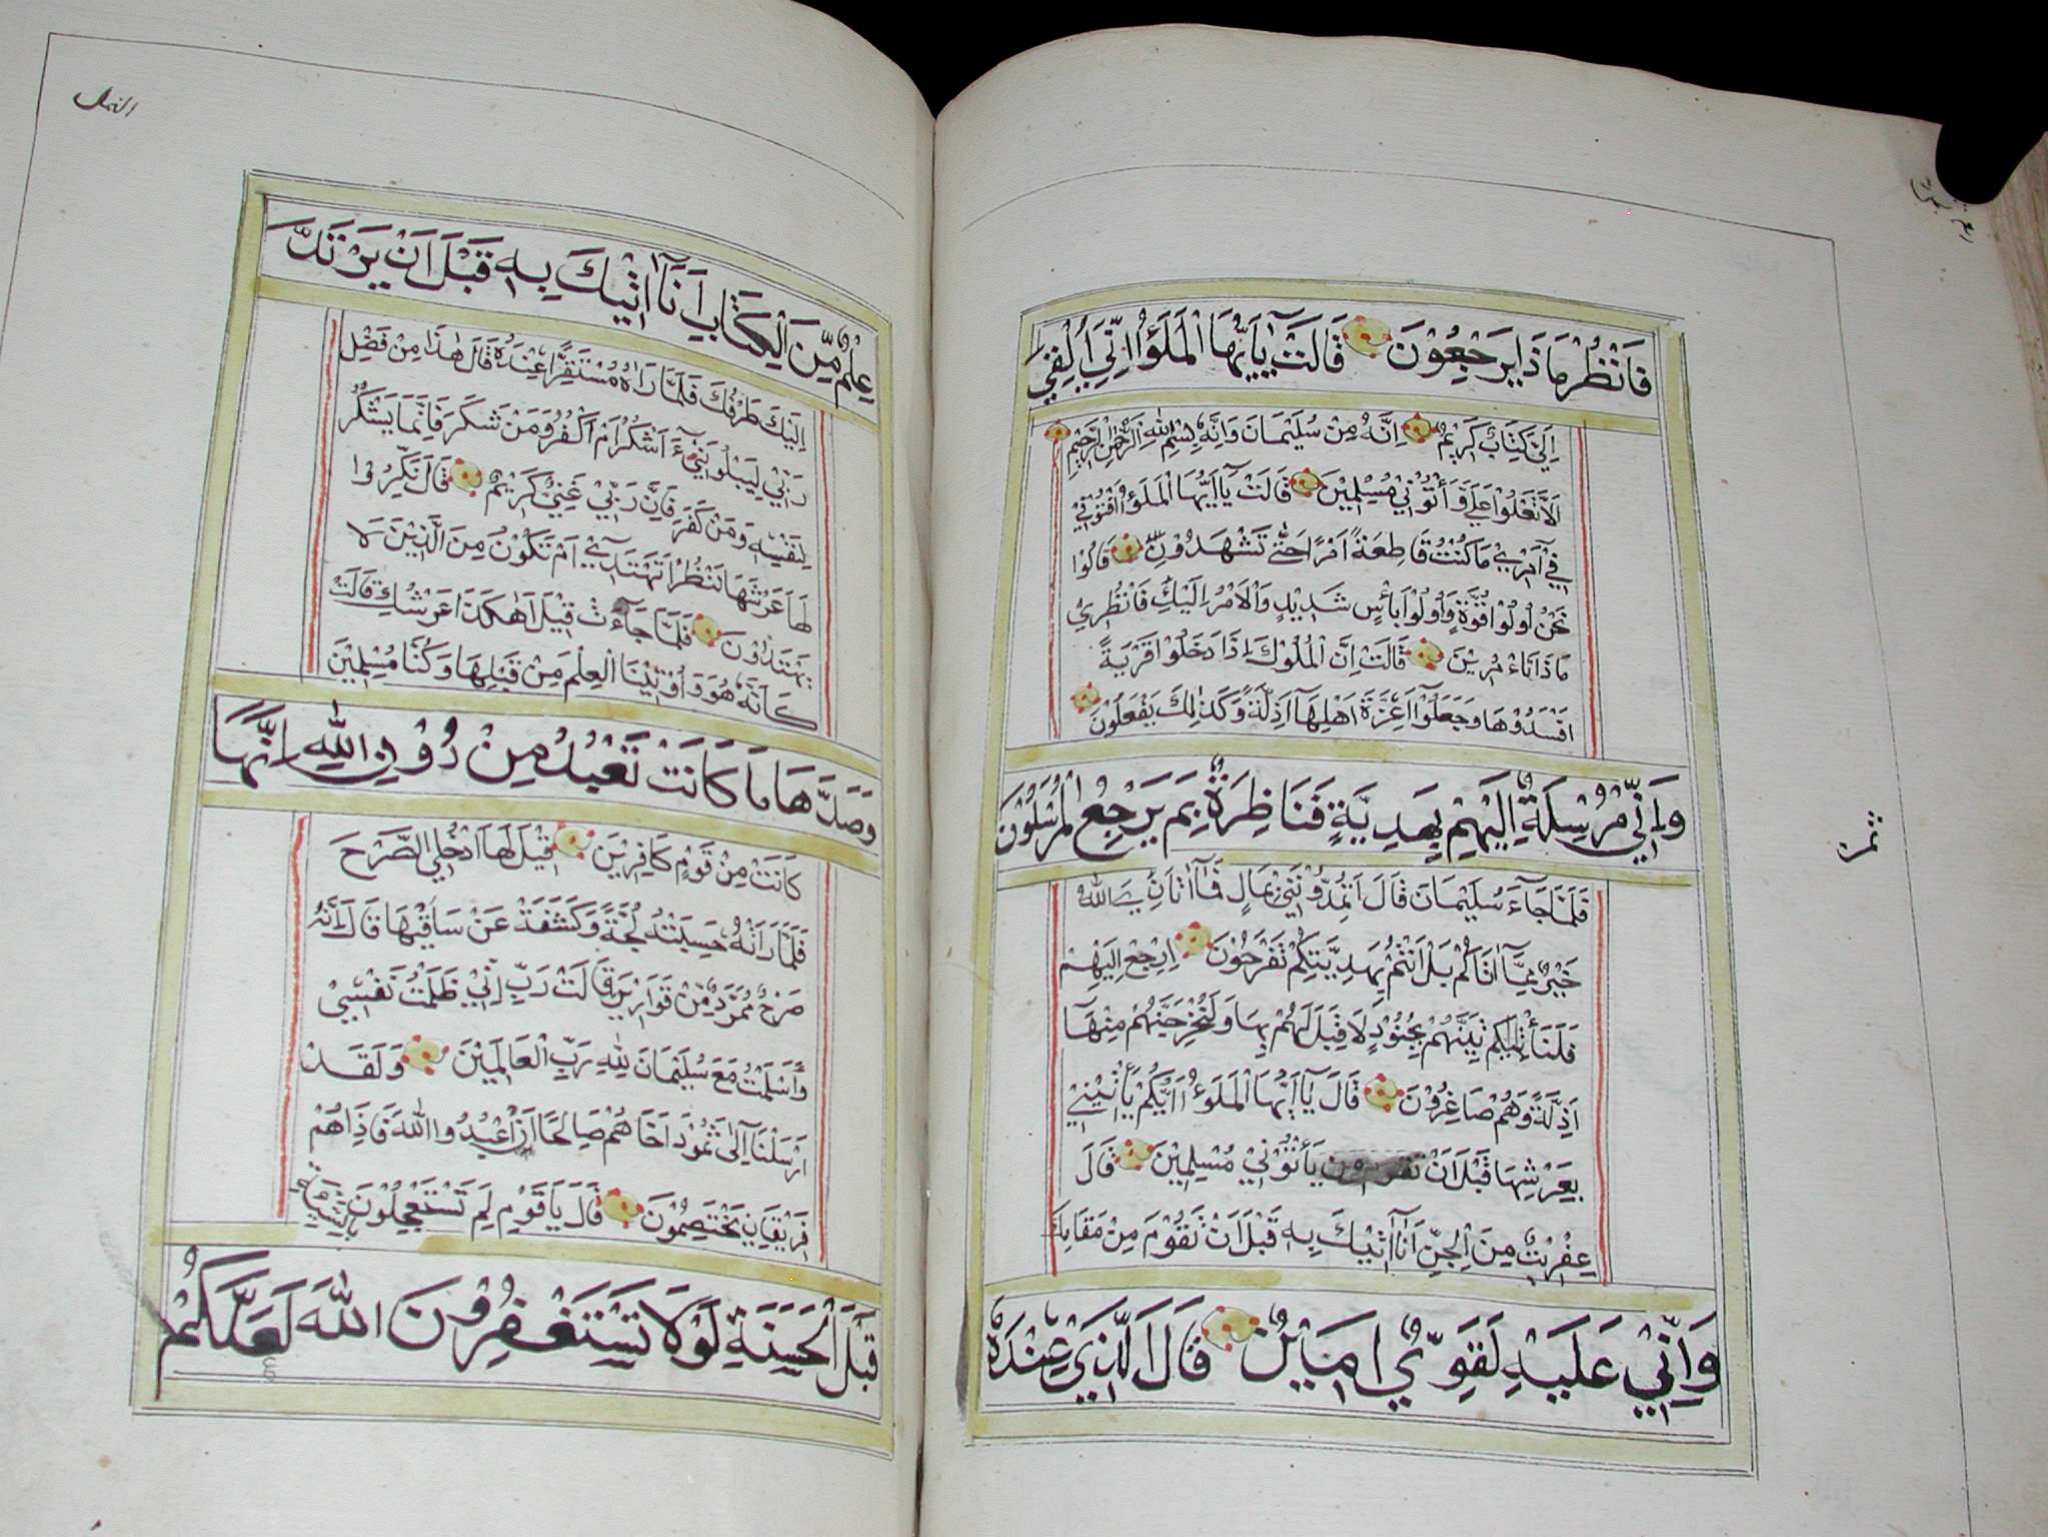 فَانْظُرْ مَا ذَا يَرْجِعُوْنَ قَالَتْ يٰٓاَيُّهَا الْمَلَؤُا اِنِّيٓ اُلْقِيَ
اِلَيَّ كِتَابٌ كَرِيْمٌ اِنَّهُ مِنْ سُلَيْمَانَ وَاِنَّهُ بِسْمِ اللهِ الرَّحْمٰنِ الرَّحِيْمِ
اَلَّا تَعْلُوْا عَلَيَّ وَأْتُوْنِيْ مُسْلِمِيْنَ قَالَتْ يَآ اَيُّهَا الْمَلَؤُا اَفْتُوْنِيْ
فِيْٓ اَمْرِيْ مَا كُنْتُ قَاطِعَةً اَمْرًا حَتّٰى تَشْهَدُوْنِ قَالُوْا
نَحْنُ اُولُوْا قُوَّةٍ وَاُولُوْا بَأْسٍ شَدِيْدٍ وَالْاَمْرُ اِلَيْكِ فَانْظُرِيْ
مَا ذَا تَاءْمُرِيْنَ قَالَتْ اِنَّ الْمُلُوْكَ اِذَا دَخَلُوْا قَرْيَةً
اَفْسَدُوْهَا وَجَعَلُوْٓا اَعِزَّةَ اَهْلِهَآ اَذِلَّةً وَكَذٰلِكَ يَفْعَلُوْنَ
وَاِنِّيْ مُرْسِلَةٌ اِلَيْهِمْ بِهَدِيَّةٍ فَنَاظِرَةٌ بِمَ يَرْجِعُ الْمُرْسَلُوْنَ
فَلَمَّا جَآءَ سُلَيْمَانَ قَالَ اَتُمِدُّوْنَنِيْ بِمَالٍ فَمَآ اٰتَانِيَ اللهُ
خَيْرٌ مِمَّآ اٰتَاكُمْ بَلْ اَنْتُمْ بِهَدِيَّتِكُمْ تَفْرَحُوْنَ اِرْجِعْ اِلَيْهِمْ
فَلَنَأْتِيَنَّهُمْ بِجُنُوْدٍ لَا قِبَلَ لَهُمْ بِهَا وَلَنُخْرِجَنَّهُمْ مِنْهَآ
اَذِلَّةً وَهُمْ صَاغِرُوْنَ قَالَ يَآ اَيُّهَا الْمَلَؤُا اَيُّكُمْ يَأْتِيْنِيْ
بِعَرْشِهَا قَبْلَ اَنْ يَأْتُوْنِيْ مُسْلِمِيْنَ قَالَ
عِفْرِيْتٌ مِنَ الْجِنِّ اَنَا۠ اٰتِيْكَ بِهٖ قَبْلَ اَنْ تَقُوْمَ مِنْ مَقَامِكَ
وَاِنِّيْ عَلَيْهِ لَقَوِيٌّ اَمِيْنٌ قَالَ الَّذِيْ عِنْدَهُ
النمل
عِلْمٌ مِّنَ الْكِتَابِ اَنَآ اٰتِيْكَ بِهٖ قَبْلَ اَنْ يَرْتَدَّ
اِلَيْكَ طَرْفُكَ فَلَمَّا رَاٰهُ مُسْتَقِرًّا عِنْدَهُ قَالَ هٰذَا مِنْ فَضْلِ
رَبِّيْ لِيَبْلُوَنِيْٓ ءَاَشْكُرُ اَمْ اَكْفُرُ وَمَنْ شَكَرَ فَاِنَّمَا يَشْكُرُ
لِنَفْسِهٖ وَمَنْ كَفَرَ فَاِنَّ رَبِّيْ غَنِيٌّ كَرِيْمٌ قَالَ نَكِّرُوْا
لَهَا عَرْشَهَا نَنْظُرْ اَتَهْتَدِيْٓ اَمْ تَكُوْنُ مِنَ الَّذِيْنَ لَا
يَهْتَدُوْنَ فَلَمَّا جَآءَتْ قِيْلَ اَهٰكَذَا عَرْشُكِ قَالَتْ
كَاَنَّهُ هُوَ وَاُوْتِيْنَا الْعِلْمَ مِنْ قَبْلِهَا وَكُنَّا مُسْلِمِيْنَ
وَصَدَّهَا مَا كَانَتْ تَعْبُدُ مِنْ دُوْنِ اللهِ اِنَّهَا
كَانَتْ مِنْ قَوْمٍ كَافِرِيْنَ قِيْلَ لَهَا ادْخُلِي الصَّرْحَ
فَلَمَّا رَاَتْهُ حَسِبَتْهُ لُجَّةً وَكَشَفَتْ عَنْ سَاقَيْهَا قَالَ اِنَّهُ
صَرْحٌ مُمَرَّدٌ مِّنْ قَوَارِيْرَ قَالَتْ رَبِّ اِنِّيْ ظَلَمْتُ نَفْسِيْ
وَاَسْلَمْتُ مَعَ سُلَيْمَانَ لِلّٰهِ رَبِّ الْعَالَمِيْنَ وَلَقَدْ
اَرْسَلْنَآ اِلٰى ثَمُوْدَ اَخَاهُمْ صَالِحًا اَنِ اعْبُدُوا اللهَ فَاِذَا هُمْ
فَرِيْقَانِ يَخْتَصِمُوْنَ قَالَ يَا قَوْمِ لِمَ تَسْتَعْجِلُوْنَ بِالسَّيِّئَةِ
قَبْلَ الْحَسَنَةِ لَوْلَا تَسْتَغْفِرُوْنَ اللهَ لَعَلَّكُمْ